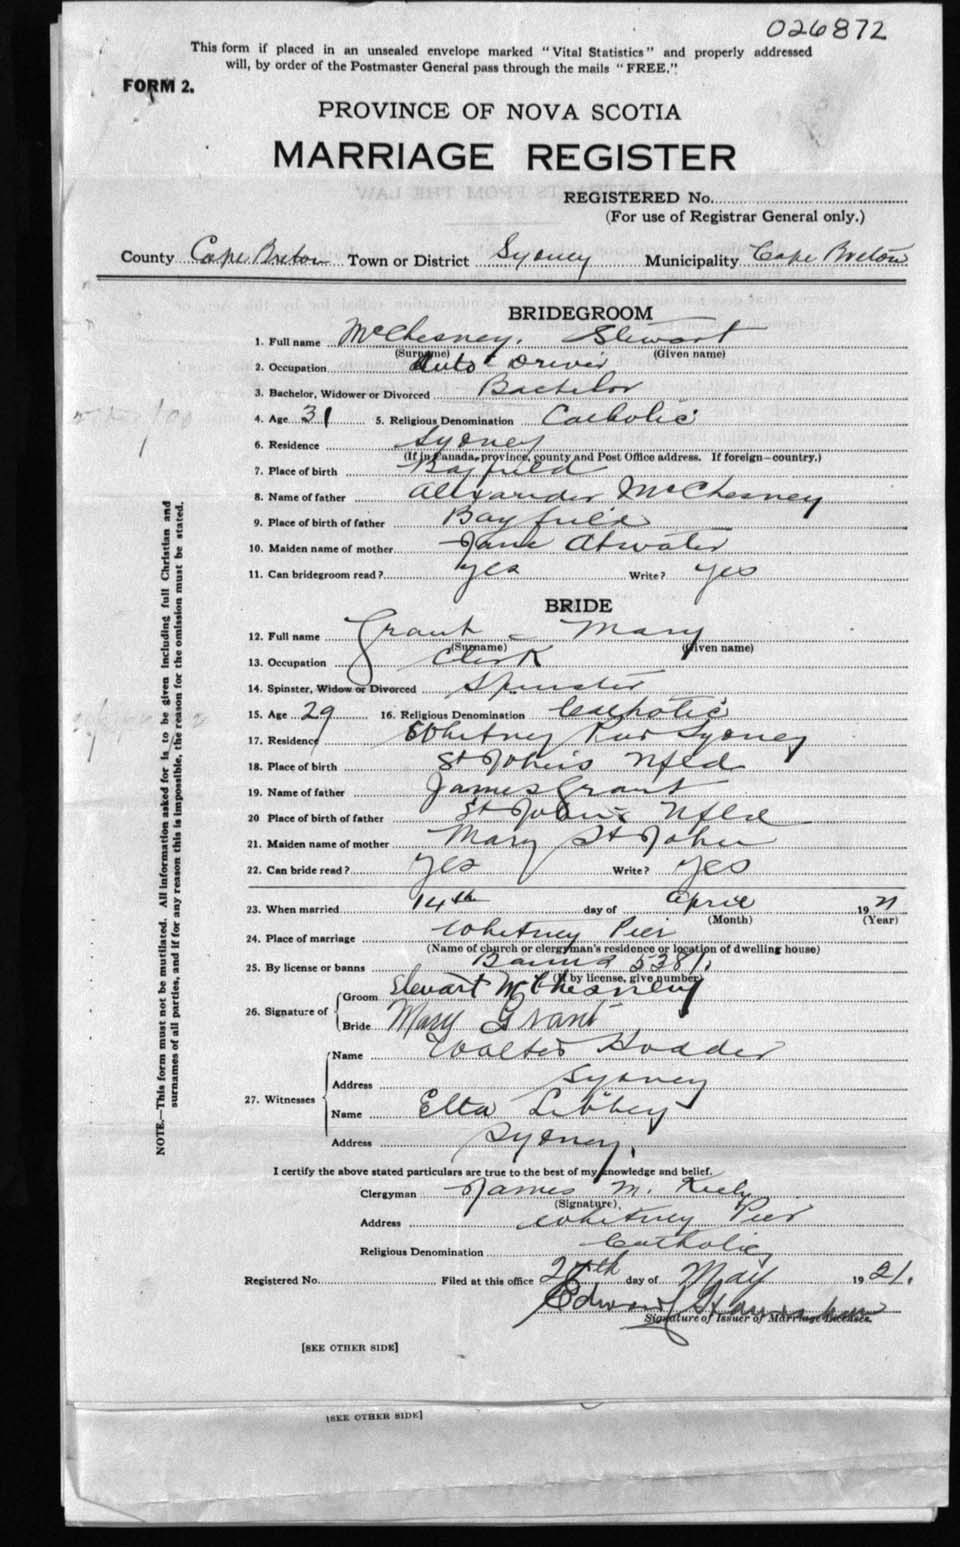 026872
This form if placed in an unsealed envelope marked "Vital Statistics" and properly addressed
will, by order of the Postmaster General pass through the mails "FREE."
FORM 2.
PROVINCE OF NOVA SCOTIA
MARRIAGE REGISTER
REGISTERED No.
(For use of Registrar General only.)
County Cape Breton Town or District Sydney Municipality Cape Breton
BRIDEGROOM
1. Full name McChesney, Stewart
(Surname) (Given name)
2. Occupation Auto Driver
3. Bachelor, Widower or Divorced Bachelor
4. Age 31 5. Religious Denomination Catholic
6. Residence Sydney
(If in Canada, province, county and Post Office address. If foreign—country.)
7. Place of birth Bayfield
8. Name of father Alexander McChesney
9. Place of birth of father Bayfield
10. Maiden name of mother Jane Atwater
11. Can bridegroom read? yes Write? yes
BRIDE
12. Full name Grant - Mary
(Surname) (Given name)
13. Occupation Clerk
14. Spinster, Widow or Divorced Spinster
15. Age 29 16. Religious Denomination Catholic
17. Residence Whitney Pier Sydney
18. Place of birth St John's Nfld
19. Name of father James Grant
20 Place of birth of father St John's Nfld
21. Maiden name of mother Mary St John
22. Can bride read? yes Write? yes
23. When married 14th day of April 1921
(Month) (Year)
24. Place of marriage Whitney Pier
(Name of church or clergyman's residence or location of dwelling house)
25. By license or banns Banns 5381.
(If by license, give number)
26. Signature of Groom Stewart McChesney
Bride Mary Grant
27. Witnesses Name Walter Hodder
Address Sydney
Name Elta Libbey
Address Sydney.
I certify the above stated particulars are true to the best of my knowledge and belief.
Clergyman James M. Kiely
(Signature)
Address Whitney Pier
Religious Denomination Catholic
Registered No. Filed at this office day of May 1921.
Edward
Signature of Issuer of Marriage Licenses.
[SEE OTHER SIDE]
[SEE OTHER SIDE]
NOTE.—This form must not be mutilated. All information asked for is to be given including full Christian and
surnames of all parties, and if for any reason this is impossible, the reason for the omission must be stated.